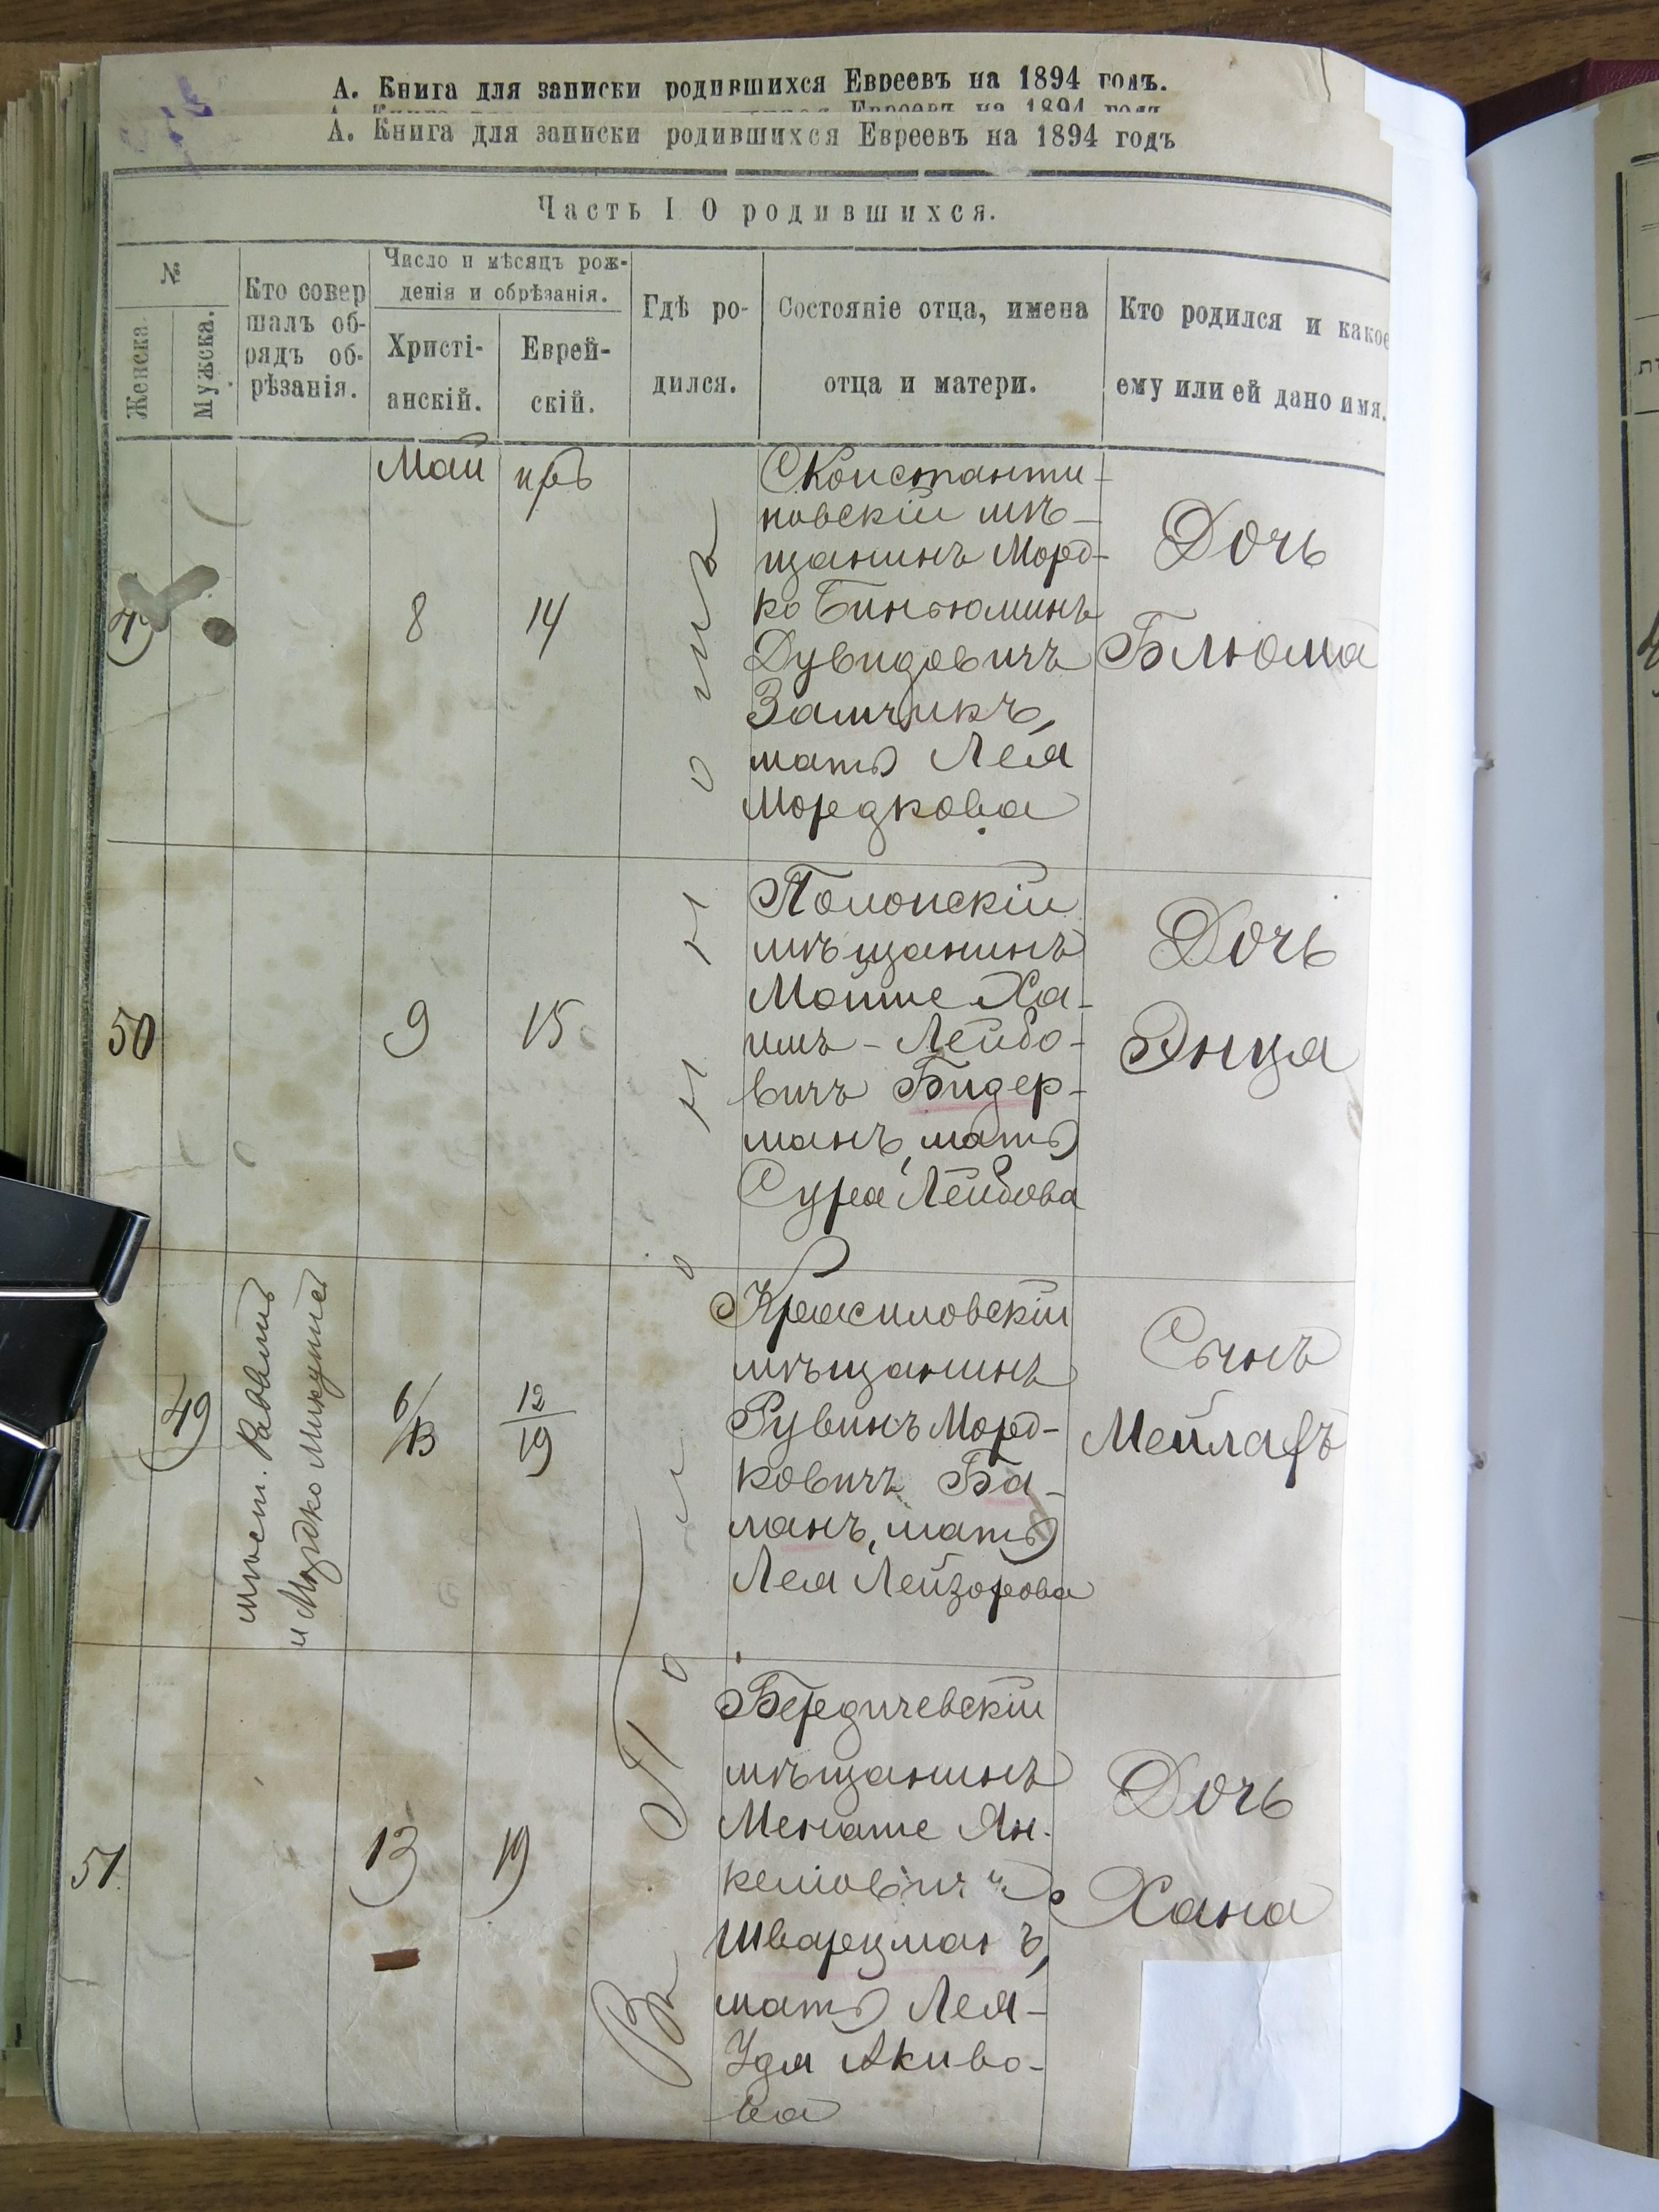 А. Книга для записки родившихся Евреевъ на 1894 годъ.
А. Книга для записки родившихся Евреевъ на 1894 годъ
Часть I О родившихся.
№
Женска.
Мужска.
Кто совер
шалъ об-
рядъ об-
рѣзанія.
Число и мѣсяцъ рож-
денія и обрѣзанія.
Христі-
анскій.
Еврей-
скій.
Гдѣ ро-
дился.
Состояніе отца, имена
отца и матери.
Кто родился и какое
ему или ей дано имя.
Май
Въ Полонномъ
8
14
Константи-
новскій мѣ-
щанинъ Морд-
ко Биньюминъ
Дувидовичъ
Замчикъ,
мать Лея
Мордкова
Дочь
Блюма
50
9
15
Полонскій
мѣщанинъ
Мойше Ха-
имъ-Лейбо-
вичъ Бидер-
манъ, мать
Сура Лейбова
Дочь
Энця
49
мѣст. Раввинъ
и Мордко Микупис
6/13
12
19
Красиловскій
мѣщанинъ
Рувинъ Морд-
ковичъ Ба-
манъ, мать
Лея Лейзорова
Сынъ
Мейлафъ
51
13
19
Бердичевскій
мѣщанинъ
Менаше Ян-
келіовичъ
Шварцманъ,
мать Лея-
Удя Акиво-
ва
Дочь
Хана